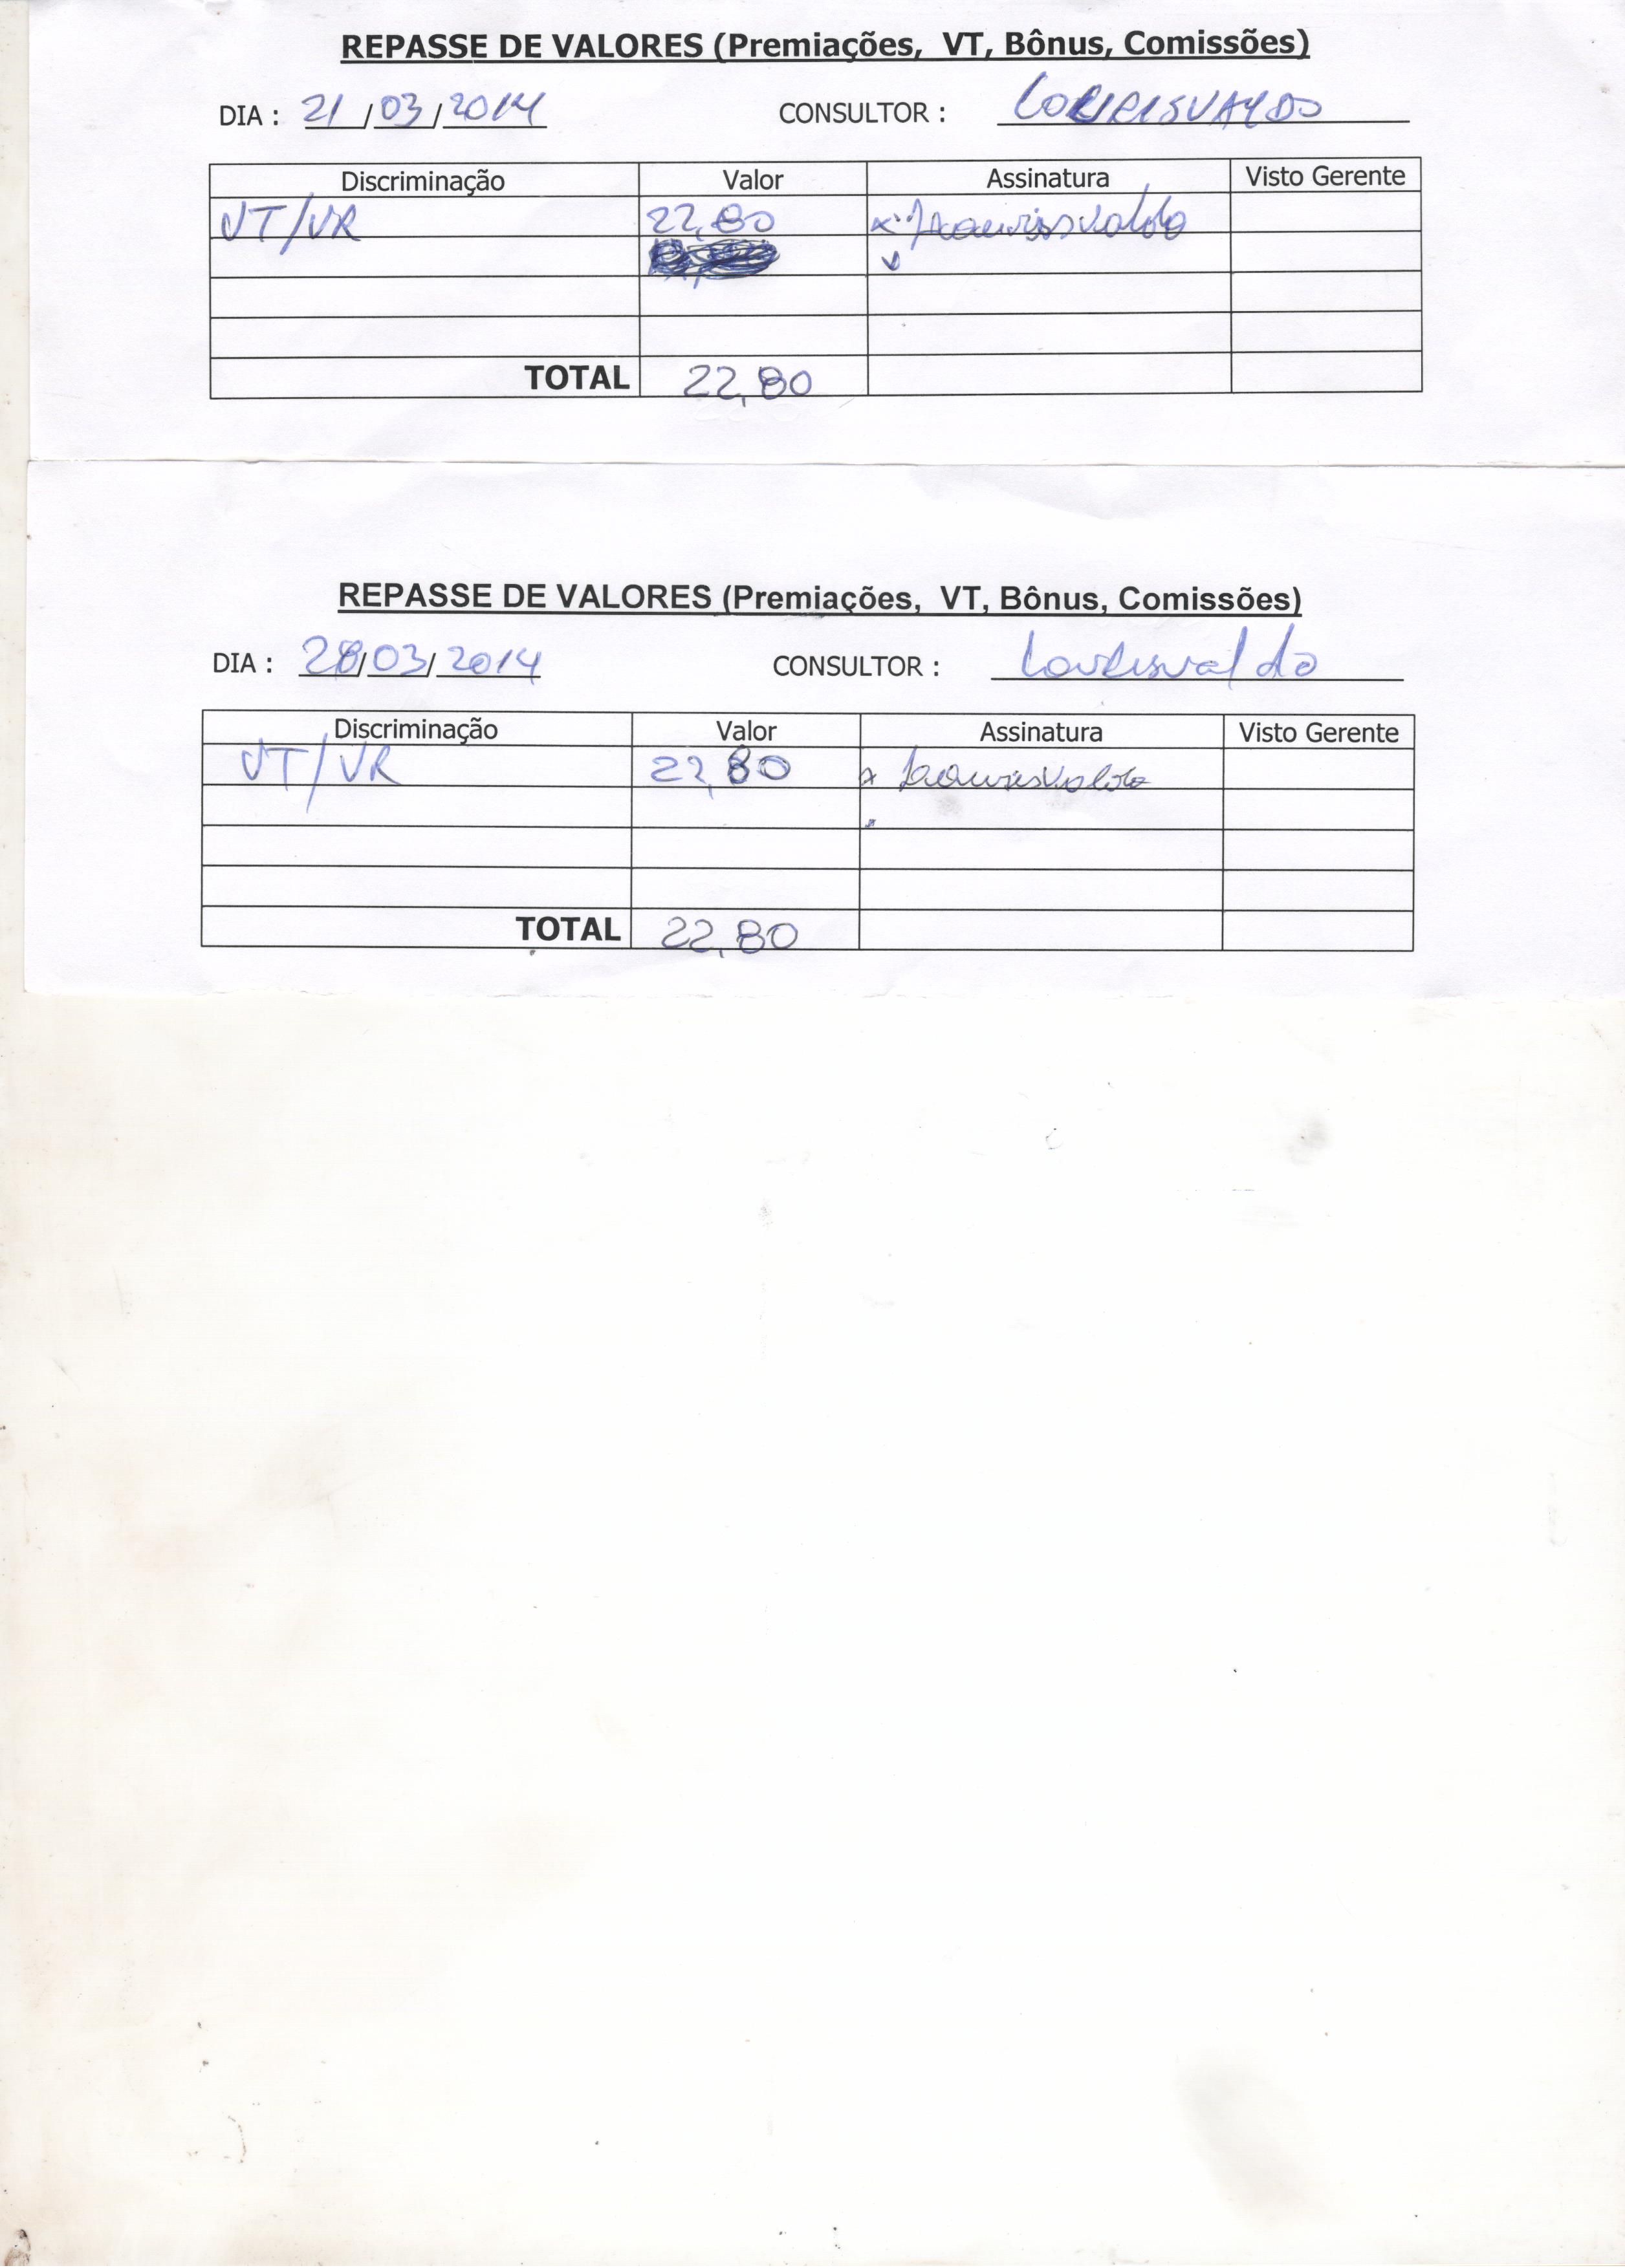 REPASSE DE VALORES (Premiações, VT, Bônus, Comissões)
DIA : 21/03/2014 CONSULTOR : LOURISVALDO
Discriminação Valor Assinatura Visto Gerente
VT/VR 22,80 x Lourisvaldo
TOTAL 22,80
REPASSE DE VALORES (Premiações, VT, Bônus, Comissões)
DIA : 28/03/2014 CONSULTOR : Lourisvaldo
Discriminação Valor Assinatura Visto Gerente
VT/VR 22,80 x Lourisvaldo
TOTAL 22,80